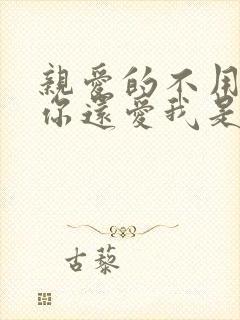 親愛的不用
你還愛我是
古藜